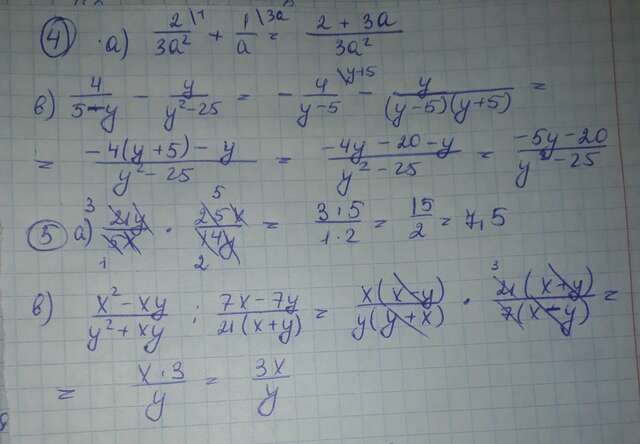 ④ a) 2\1/3a² + 1\3a/a = (2 + 3a)/3a²
в) 4/(5-y) - y/(y²-25) = - 4\y+5/(y-5) - y/((y-5)(y+5)) =
= (-4(y+5) - y)/(y²-25) = (-4y - 20 - y)/(y²-25) = (-5y-20)/(y²-25)
⑤ a) 3 21y/5x 1 · 5 25x/14y 2 = 3·5/1·2 = 15/2 = 7,5
в) (x²-xy)/(y²+xy) : (7x-7y)/(21(x+y)) = x(x-y)/y(y+x) · 3 21(x+y)/7(x-y) =
= x·3/y = 3x/y